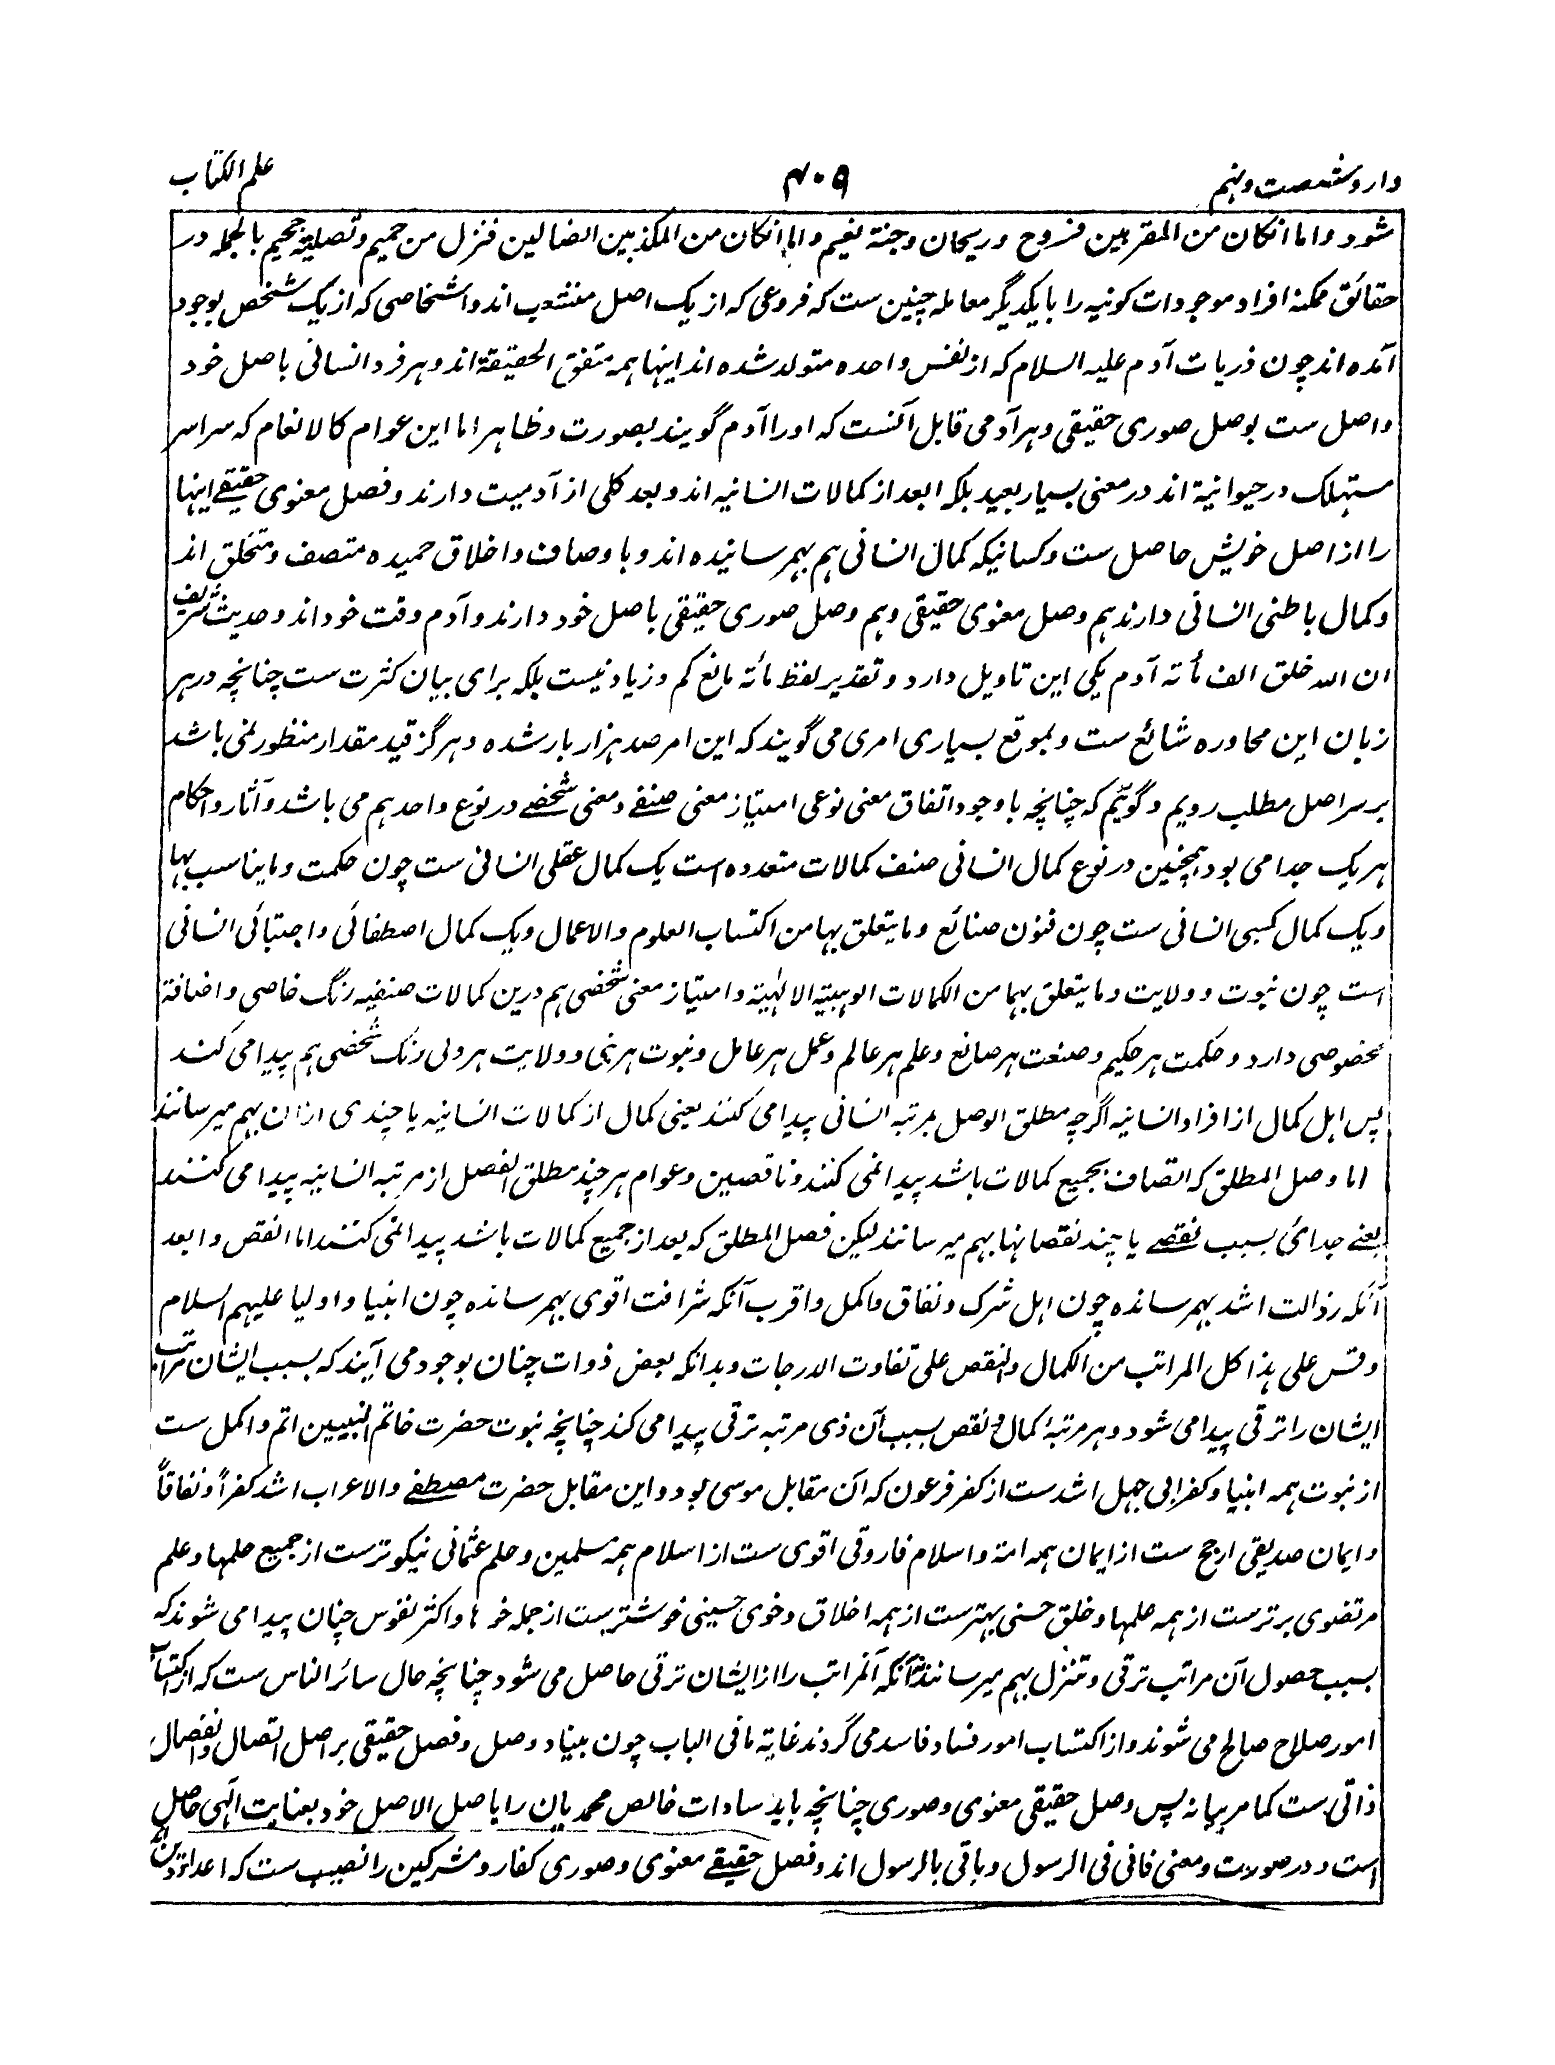 وارد شصت و نهم
۴۰۹
علم الکتاب
شود و اما انکان من المقربین فروح و ریحان و جنة نعیم و اما انکان من المکذبین الضالین فنزل من حمیم و تصلیة جحیم بالجمله در
حقائق ممکنه افراد موجودات کونیه را با یکدیگر معامله چنین ست که فروعی که از یک اصل منشعب اند و اشخاصی که از یک شخص بوجود
آمده اند چون ذریات آدم علیه السلام که از نفس واحده متولد شده اند اینها همه متفق الحقیقة اند و هر فرد انسانی باصل خود
واصل ست بوصل صوری حقیقی و هر آدمی قابل آنست که او را آدم گویند بصورت و ظاهر اما این عوام کالانعام که سراسر
مستهلک در حیوانیة اند در معنی بسیار بعید بلکه ابعد از کمالات انسانیه اند و بعد کلی از آدمیت دارند و فصل معنوی حقیقے اینها
را از اصل خویش حاصل ست و کسانیکه کمال انسانی هم بهمرسانیده اند و باوصاف و اخلاق حمیده متصف و متخلق اند
و کمال باطنی انسانی دارند هم وصل معنوی حقیقی و هم وصل صوری حقیقی باصل خود دارند و آدم وقت خود اند و حدیث شریف
ان الله خلق الف مأته آدم یکی این تاویل دارد و تقدیر لفظ مأته مانع کم و زیاد نیست بلکه برای بیان کثرت ست چنانچه در هر
زبان این محاوره شائع ست و بموقع بسیاری امری می گویند که این امر صد هزار بار شده و هرگز قید مقدار منظور نمی باشد
بر سر اصل مطلب رویم و گوئیم که چنانچه با وجود اتفاق معنی نوعی امتیاز معنی صنفے و معنی شخصے در نوع واحد هم می باشد و آثار و احکام
هر یک جدا می بود همچنین در نوع کمال انسانی صنف کمالات متعدده است یک کمال عقلی انسانی ست چون حکمت و ما یناسب بها
و یک کمال کسبی انسانی ست چون فنون صنائع و ما یتعلق بها من اکتساب العلوم والاعمال و یک کمال اصطفائی و اجتبائی انسانی
است چون نبوت و ولایت و ما یتعلق بهما من الکمالات الوهبیة الالهیة و امتیاز معنی شخصی هم درین کمالات صنفیه رنگ خاصی و اضافة
مخصوصی دارد و حکمت هر حکیم و صنعت هر صانع و علم هر عالم و عمل هر عامل و نبوت هر نبی و ولایت هر ولی رنگ شخصی هم پیدا می کند
پس اهل کمال از افراد انسانیه اگرچه مطلق الوصل بمرتبه انسانی پیدا می کنند یعنی کمال از کمالات انسانیه یا چندی ازان بهم میرسانند
اما وصل المطلق که اتصاف بجمیع کمالات باشد پیدا نمی کنند و ناقصین و عوام هر چند مطلق الفصل از مرتبه انسانیه پیدا می کنند
یعنے جدائی بسبب نقصے یا چند نقصانها بهم میرسانند لیکن فصل المطلق که بعد از جمیع کمالات باشد پیدا نمی کنند اما انقص و ابعد
آنکه رذالت اشد بهمرسانده چون اهل شرک و نفاق و اکمل و اقرب آنکه شرافت اقوی بهمرسانده چون انبیا و اولیا علیهم السلام
و قس علی هذا کل المراتب من الکمال والنقص علی تفاوت الدرجات و بدانکه بعض ذوات چنان بوجود می آیند که بسبب ایشان مراتب
ایشان را ترقی پیدا می شود و هر مرتبۀ کمال و نقص بسبب آن ذی مرتبه ترقی پیدا می کند چنانچه نبوت حضرت خاتم النبیین اتم و اکمل ست
از نبوت همه انبیا و کفر ابی جهل اشد ست از کفر فرعون که آن مقابل موسی بود و این مقابل حضرت مصطفے والاعراب اشد کفراً و نفاقاً
و ایمان صدیقی ارجح ست از ایمان همه امة و اسلام فاروقی اقوی ست از اسلام همه مسلمین و حلم عثمانی نیکوتر ست از جمیع حلمها و علم
مرتضوی برتر ست از همه علمها و خلق حسنی بهتر ست از همه اخلاق و خوی حسینی خوشتر ست از جمله خوها و اکثر نفوس چنان پیدا می شوند که
بسبب حصول آن مراتب ترقی و تنزل بهم میرسانند نه آنکه آنمراتب را از ایشان ترقی حاصل می شود چنانچه حال سائر الناس ست که از اکتساب
امور صلاح صالح می شوند و از اکتساب امور فساد فاسد می گردند غایة ما فی الباب چون بنیاد وصل و فصل حقیقی بر اصل اتصال و انفصال
ذاتی ست کما مر بیانه پس وصل حقیقی معنوی و صوری چنانچه باید سادات خالص محمدیان را باصل الاصل خود بعنایت الٰهی حاصل
است و در صورت و معنی فانی فی الرسول و باقی بالرسول اند و فصل حقیقے معنوی و صوری کفار و مشرکین را نصیب ست که اعداء دین